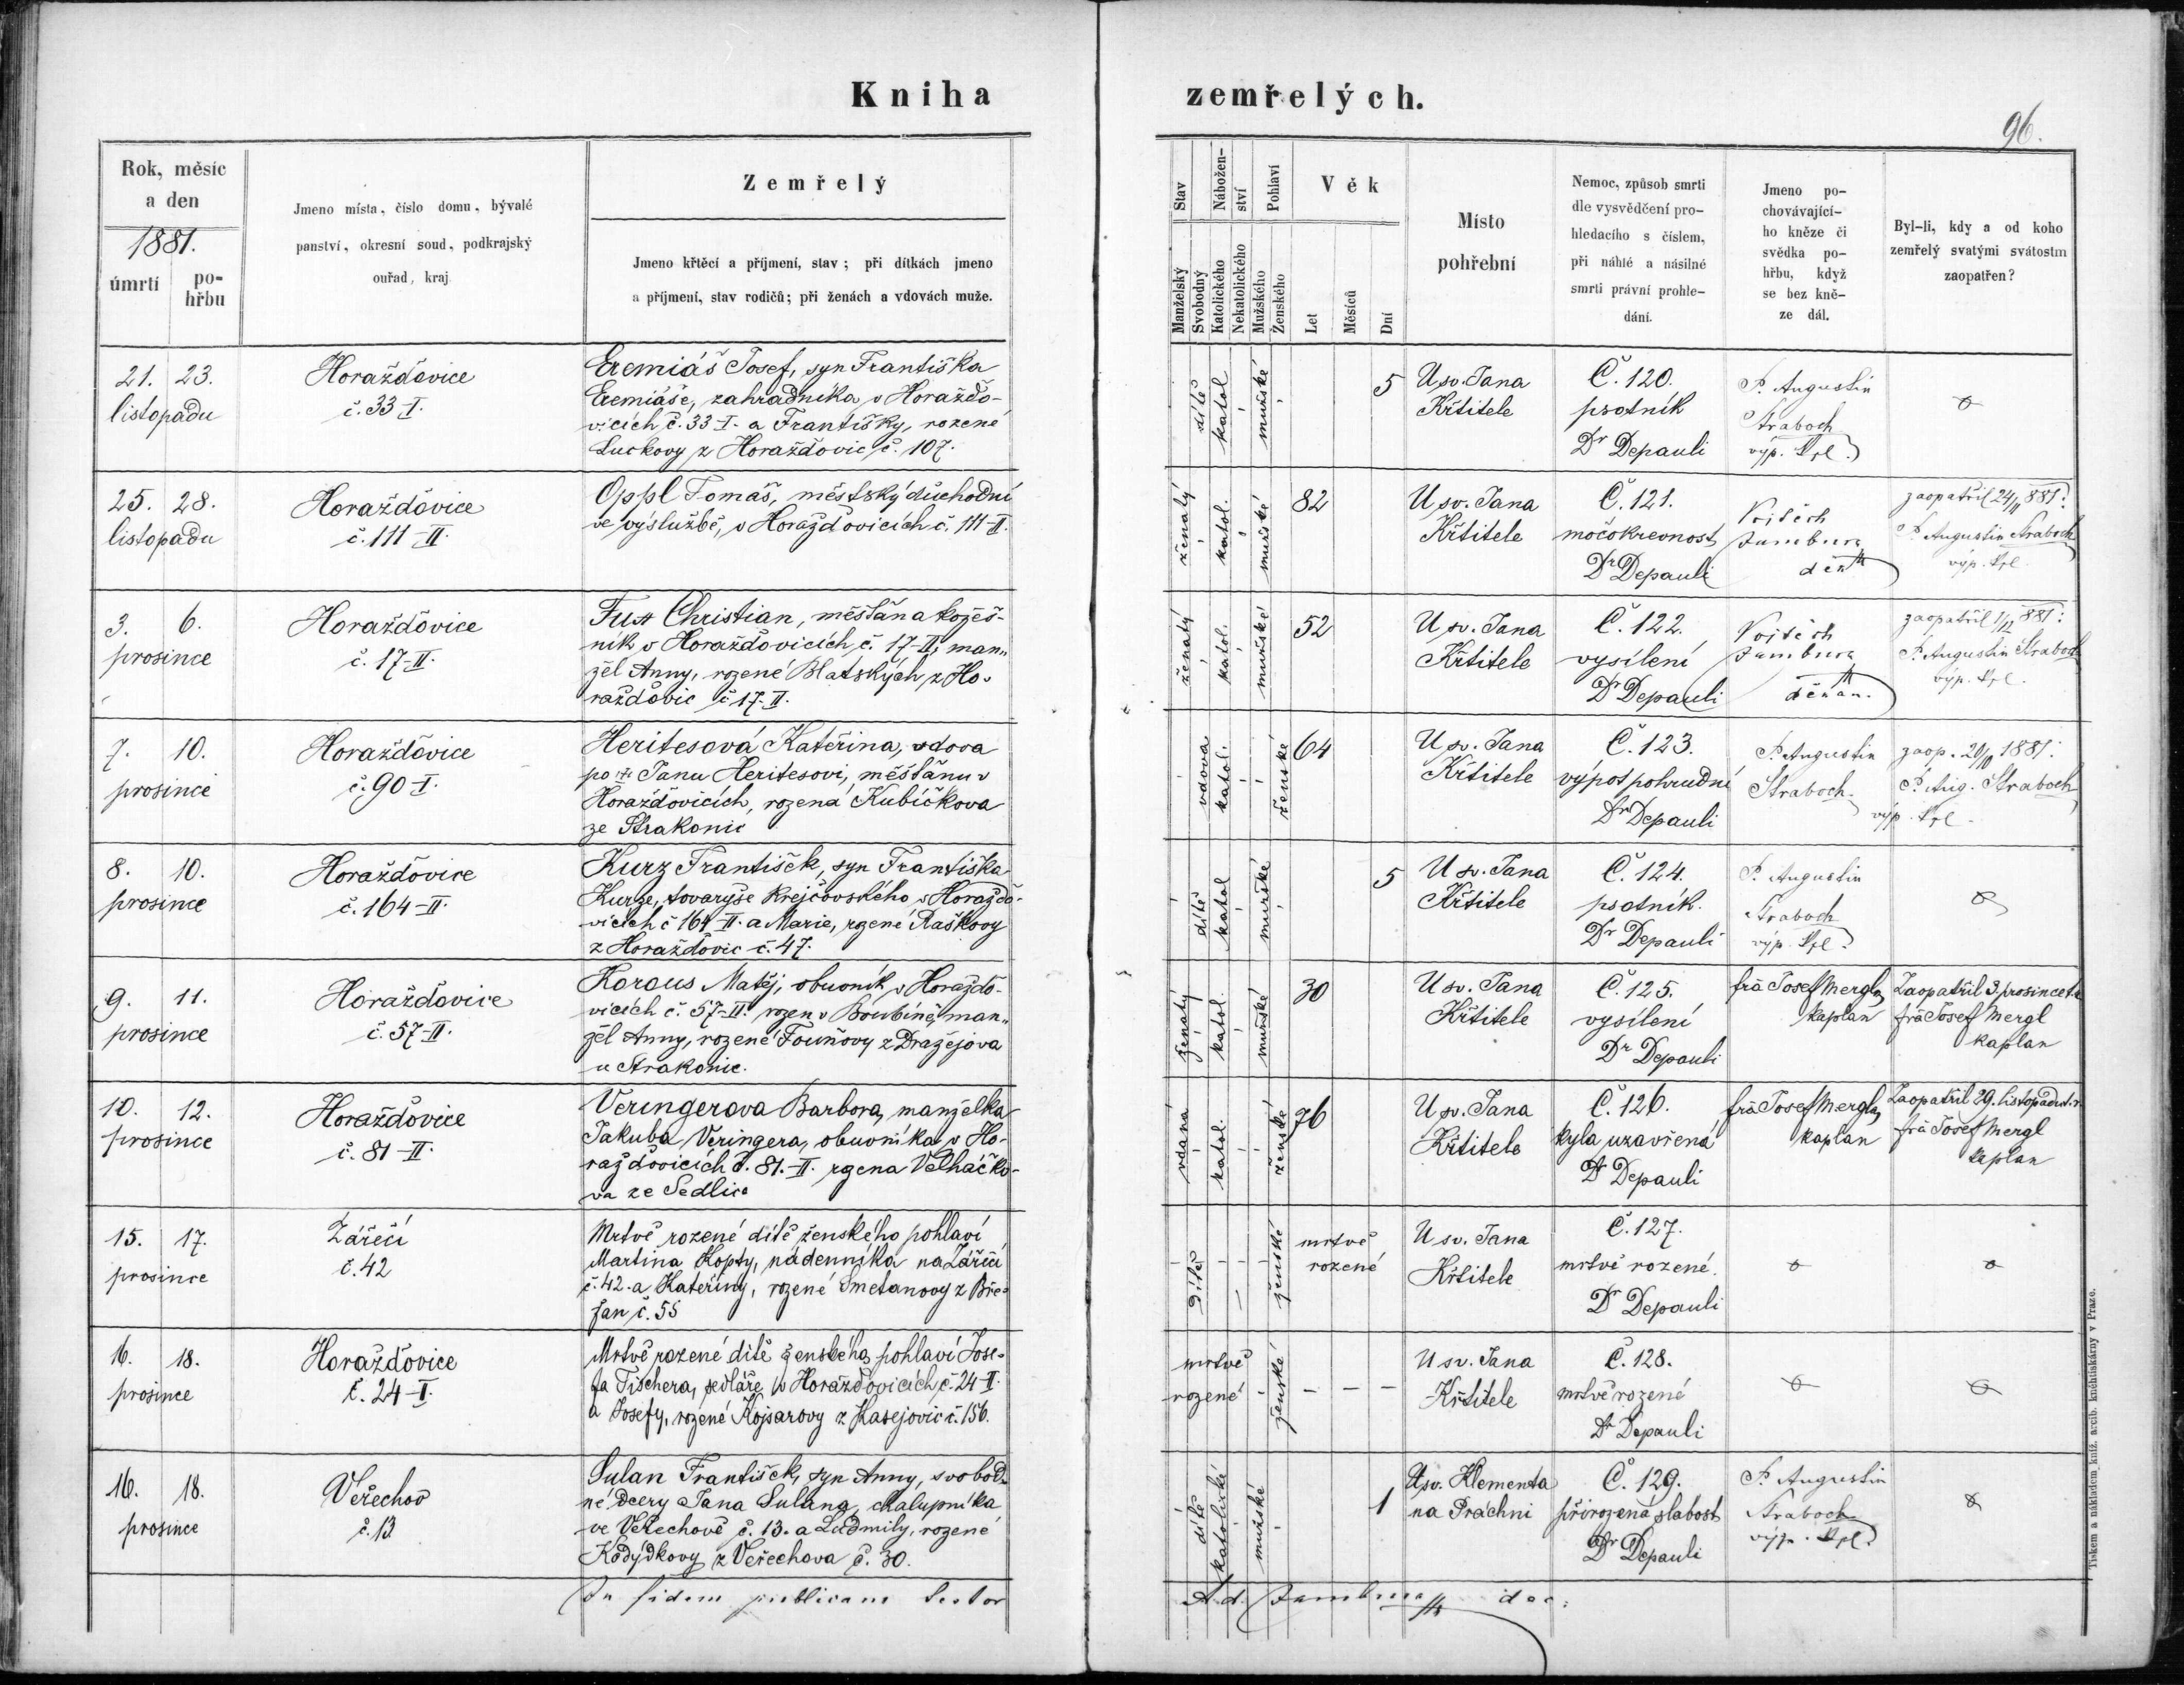 Kniha
zemřelých.
96.
Rok, měsíc
a den
1881.
úmrtí
po-
hřbu
Jmeno místa, číslo domu, bývalé
panství, okresní soud, podkrajský
ouřad, kraj
Zemřelý
Jmeno křtěcí a příjmení, stav; při dítkách jmeno
a příjmení, stav rodičů; při ženách a vdovách muže.
Stav
Manželský
Svobodný
Nábožen-
ství
Katolického
Nekatolického
Pohlaví
Mužského
Ženského
Věk
Let
Měsíců
Dní
Místo
pohřební
Nemoc, způsob smrti
dle vysvědčení pro-
hledacího s číslem,
při náhlé a násilné
smrti právní prohle-
dání.
Jmeno po-
chovávající-
ho kněze či
svědka po-
hřbu, když
se bez kně-
ze dál.
Byl-li, kdy a od koho
zemřelý svatými svátostmi
zaopatřen?
21. 23.
listopadu
Horažďovice
č. 33-I.
Eremiáš Josef, syn Františka
Eremiáše, zahradníka v Horaždo-
vicích č. 33-I. a Františky, rozené
Luckovy z Horažďovic č. 107.
dítě
katol
mužské
5
U sv. Jana
Křtitele
Č. 120.
psotník
Dr Depauli
P. Augustin
Straboch
výp. kpl.
25. 28.
listopadu
Horažďovice
č. 111-II.
Oppl Tomáš, městský důchodní
ve výslužbě, v Horažďovicích č. 111-II.
ženatý
katol.
mužské
82
U sv. Jana
Křtitele
Č. 121.
močokrevnost
Dr Depauli
Vojtěch
Jambura
děk
zaopatřil 24/11 881:
P. Augustin Straboch
výp. kpl.
3. 6.
prosince
Horažďovice
č. 17-II.
Fux Christian, měšťan a kožeš-
ník v Horažďovicích č. 17-II, man-
žel Anny, rozené Blatských z Ho-
ražďovic č 17-II.
ženatý
katol.
mužské
52
U sv. Jana
Křtitele
Č. 122.
vysílení
Dr Depauli
Vojtěch
Jambura
děkan.
zaopatřil 1/12 881:
P. Augustin Straboch
výp. kpl.
7. 10.
prosince
Horažďovice
č. 90-I.
Heritesová Kateřina, vdova
po Janu Heritesovi, měšťanu v
Horažďovicích, rozená Kubíčkova
ze Strakonic
vdova
katol.
ženské
64
U sv. Jana
Křtitele
Č. 123.
výpot pohrudní
Dr Depauli
P. Augustin
Straboch
zaop. 20/10 1881:
P. Aug. Straboch
výp. kpl.
8. 10.
prosince
Horažďovice
č. 164-II.
Kurz František, syn Františka
Kurze, tovaryše krejčovského v Horaždo-
vicích č 164-II. a Marie, rozené Raškovy
z Horažďovic č. 47.
dítě
katol
mužské
5
U sv. Jana
Křtitele
Č. 124.
psotník.
Dr Depauli
P. Augustin
Straboch
výp. kpl.
9. 11.
prosince
Horažďovice
č. 57-II.
Koraus Matěj, obuvník v Horaždo-
vicích č. 57-II. rozen v Boubíně, man-
žel Anny, rozené Fouňovy z Dražejova
u Strakonic.
ženatý
katol.
mužské
30
U sv. Jana
Křtitele
Č. 125.
vysílení
Dr Depauli
frä Josef Mergl
kaplan
Zaopatřil 3. prosince t.r.
frä Josef Mergl
kaplan
10. 12.
prosince
Horažďovice
č. 81-II.
Veringerova Barbora, manželka
Jakuba Veringera, obuvníka v Ho-
ražďovicích č. 81.-II. rozena Velháčko-
va ze Sedlice
vdaná
katol.
ženské
76
U sv. Jana
Křtitele
Č. 126.
kyla uzavřená
Dr Depauli
frä Josef Mergl
kaplan
Zaopatřil 29. listopadu t.r.
frä Josef Mergl
kaplan
15. 17.
prosince
Zářečí
č. 42
Mrtvě rozené dítě ženského pohlaví
Martina Kopty, nádenníka na Zářičí
č. 42. a Kateřiny, rozené Smetanovy z Bře-
žan č. 55
dítě
ženské
mrtvě
rozené
U sv. Jana
Křtitele
Č. 127.
mrtvě rozené.
Dr Depauli
16. 18.
prosince
Horažďovice
č. 24-I.
Mrtvě rozené dítě ženského pohlaví Jose-
fa Fischera, sedláře v Horažďovicích č. 24-I.
a Josefy, rozené Kojsarovy z Kasejovic č. 156.
mrtvě
rozené
ženské
U sv. Jana
Křtitele
Č. 128.
mrtvě rozené
Dr Depauli
16. 18.
prosince
Veřechov
č. 13
Sulan František, syn Anny, svobod-
né dcery Jana Sulana, chalupníka
ve Veřechově č. 13. a Ludmily, rozené
Kodýdkovy z Veřechova č. 30.
dítě
katolické
mužské
1
U sv. Klementa
na Práchni
Č. 129.
přirozená slabost
Dr Depauli
P. Augustin
Straboch
výp. kpl.
In fidem publicam testor
Ad. Jambura dec:
Tiskem a nákladem kníž. arcib. kněhtiskárny v Praze.